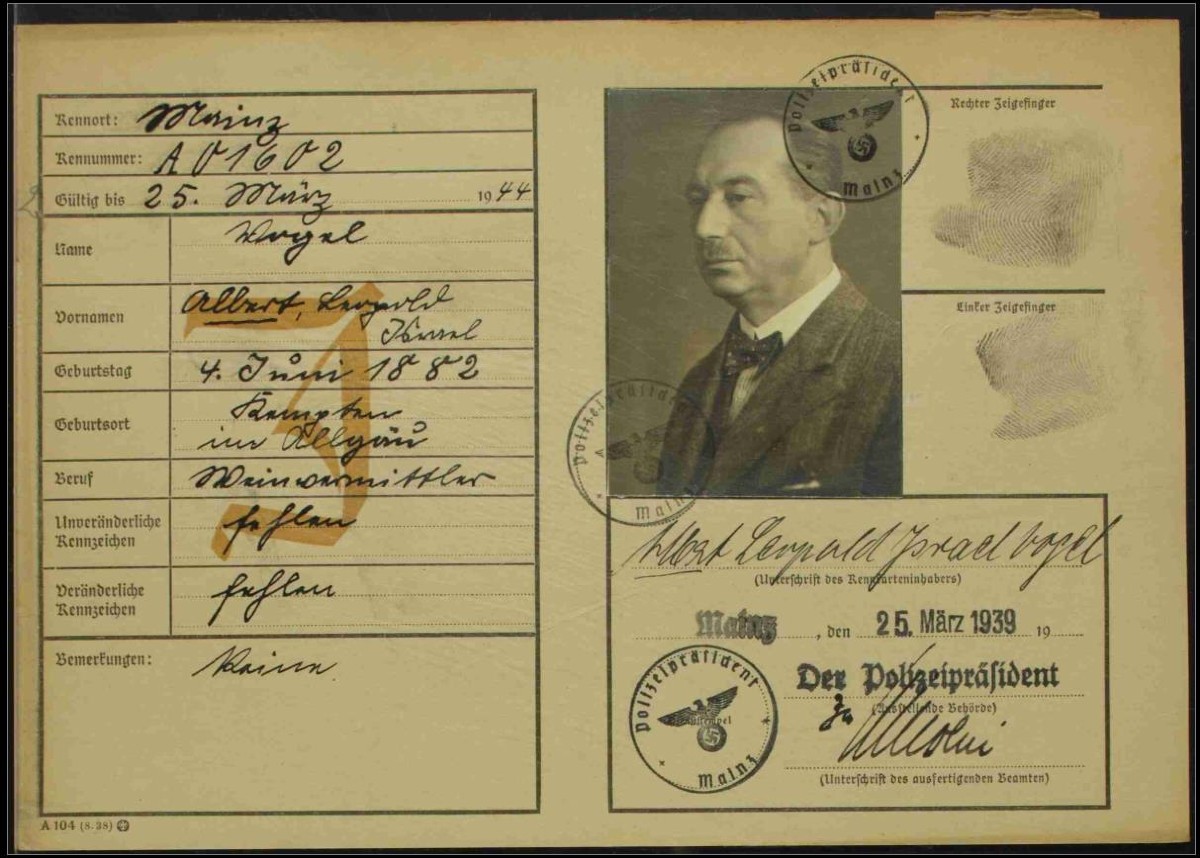 Kennort: Mainz
Kennummer: A 01602
Gültig bis 25. März 1944
Name Vogel
Vornamen Albert, Leopold
Israel
Geburtstag 4. Juni 1882
Geburtsort Kempten
im Allgäu
Beruf Weinvermittler
Unveränderliche
Kennzeichen fehlen
Veränderliche
Kennzeichen fehlen
Bemerkungen: Keine
J
A 104 (8. 38)
Polizeipräsident
Mainz
Rechter Zeigefinger
Linker Zeigefinger
Polizeipräsident
Mainz
Albert Leopold Israel Vogel
(Unterschrift des Kennkarteninhabers)
Mainz, den 25. März 1939 19
Der Polizeipräsident
(Ausstellende Behörde)
(Unterschrift des ausfertigenden Beamten)
Polizeipräsident
Mainz